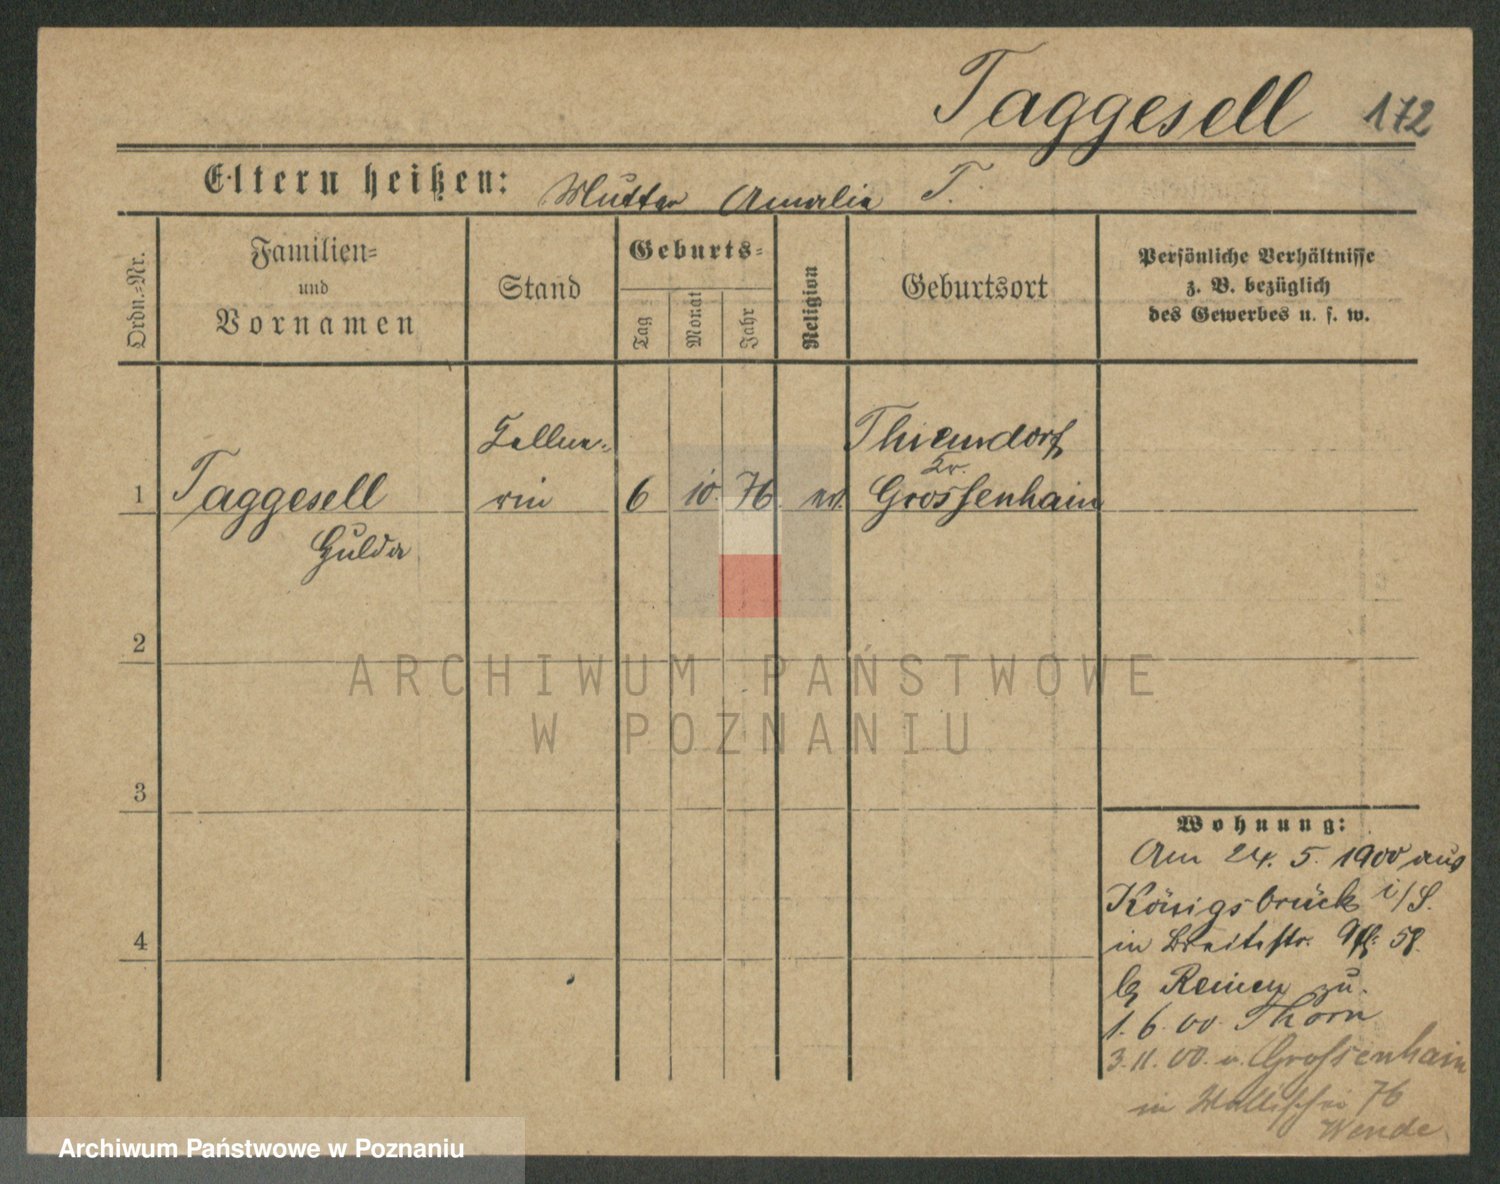 Taggesell 172
Eltern heißen: Mutter Amalie T.
Ordn.-Nr.
Familien-
und
Vornamen
Stand
Geburts-
Tag
Monat
Jahr
Religion
Geburtsort
Persönliche Verhältnisse
z. B. bezüglich
des Gewerbes u. s. w.
1
Taggesell
Hulda
Kellne-
rin
6
10.
76
ev.
Thiendorf
Kr.
Grossenhain
2
3
4
Wohnung:
Am 24. 5. 1900 aus
Königsbrück i/S.
in Breitestr. 58.
b/ Reimer zu.
1. 6. 00 Thorn
3. 11. 00. v. Grossenhain
in Wallischei 76
Wende
ARCHIWUM PAŃSTWOWE
W POZNANIU
Archiwum Państwowe w Poznaniu